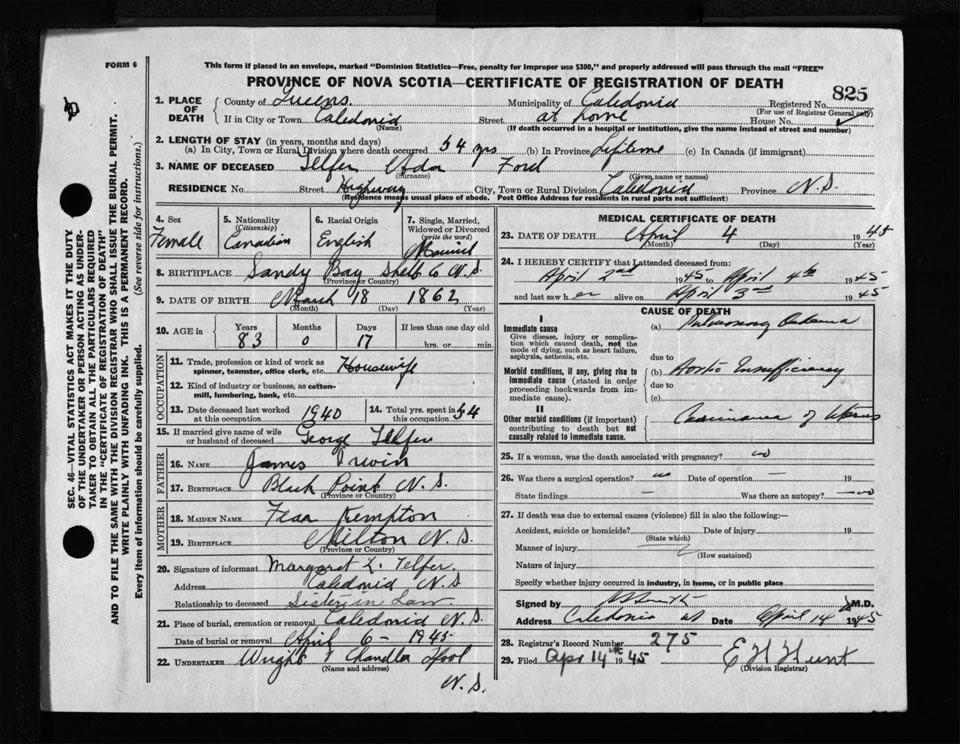 FORM 6
This form if placed in an envelope, marked "Dominion Statistics—Free, penalty for improper use $300," and properly addressed will pass through the mail "FREE"
PROVINCE OF NOVA SCOTIA—CERTIFICATE OF REGISTRATION OF DEATH
825
1. PLACE OF DEATH
County of Queens Municipality of Caledonia Registered No.
(For use of Registrar General only)
If in City or Town Caledonia Street at home House No.
(Name) (If death occurred in a hospital or institution, give the name instead of street and number)
2. LENGTH OF STAY (in years, months and days)
(a) In City, Town or Rural Division where death occurred 54 yrs (b) In Province Lifetime (c) In Canada (if immigrant)
3. NAME OF DECEASED Telfer Ada Ford
(Surname) (Given name or names)
RESIDENCE No. Street Highway City, Town or Rural Division Caledonia Province N.S.
(Residence means usual place of abode. Post Office Address for residents in rural parts not sufficient)
SEC. 46—VITAL STATISTICS ACT MAKES IT THE DUTY
OF THE UNDERTAKER OR PERSON ACTING AS UNDER-
TAKER TO OBTAIN ALL THE PARTICULARS REQUIRED
IN THE "CERTIFICATE OF REGISTRATION OF DEATH"
AND TO FILE THE SAME WITH THE DIVISION REGISTRAR WHO SHALL ISSUE THE BURIAL PERMIT.
WRITE PLAINLY WITH UNFADING INK. THIS IS A PERMANENT RECORD.
Every item of information should be carefully supplied. (See reverse side for instructions.)
4. Sex 5. Nationality (Citizenship) 6. Racial Origin 7. Single, Married, Widowed or Divorced (write the word)
Female Canadian English Married
8. BIRTHPLACE Sandy Bay Shelb Co N.S.
(Province or Country)
9. DATE OF BIRTH March 18 1862
(Month) (Day) (Year)
10. AGE in Years Months Days If less than one day old
83 0 17 hrs. or min.
OCCUPATION
11. Trade, profession or kind of work as spinner, teamster, office clerk, etc. Housewife
12. Kind of industry or business, as cotton-mill, lumbering, bank, etc.
13. Date deceased last worked at this occupation 1940 14. Total yrs. spent in 54
15. If married give name of wife or husband of deceased George Telfer
FATHER
16. NAME James Irwin
17. BIRTHPLACE Black Point N.S.
(Province or Country)
MOTHER
18. MAIDEN NAME Kempton
19. BIRTHPLACE Milton N.S.
(Province or Country)
20. Signature of informant Margaret L. Telfer
Address Caledonia N.S
Relationship to deceased Sister in Law
21. Place of burial, cremation or removal Caledonia N.S.
Date of burial or removal April 6 - 1945
22. UNDERTAKER Wright & Chandler Lpool
(Name and address)
N.S.
MEDICAL CERTIFICATE OF DEATH
23. DATE OF DEATH April 4 1945
(Month) (Day) (Year)
24. I HEREBY CERTIFY that I attended deceased from:
April 2nd 1945 to April 4th 1945
and last saw her alive on April 3rd 1945
CAUSE OF DEATH
I
Immediate cause (a) Pulmonary Oedema
Give disease, injury or complica-
tion which caused death, not the
mode of dying, such as heart failure,
asphyxia, asthenia, etc. due to
Morbid conditions, if any, giving rise to
immediate cause (stated in order
proceeding backwards from im-
mediate cause).
(b) Aortic Insufficiency
due to
(c)
II
Other morbid conditions (if important)
contributing to death but not
causally related to immediate cause.
Carcinoma of Uterus
25. If a woman, was the death associated with pregnancy? no
26. Was there a surgical operation? no Date of operation — 19
State findings — Was there an autopsy? — no
27. If death was due to external causes (violence) fill in also the following:—
Accident, suicide or homicide? Date of injury 19
(State which)
Manner of injury
(How sustained)
Nature of injury
Specify whether injury occurred in industry, in home, or in public place
Signed by Smith M.D.
Address Caledonia Date April 14 1945
28. Registrar's Record Number 275
29. Filed Apr 14th 1945 E H Hunt
(Division Registrar)